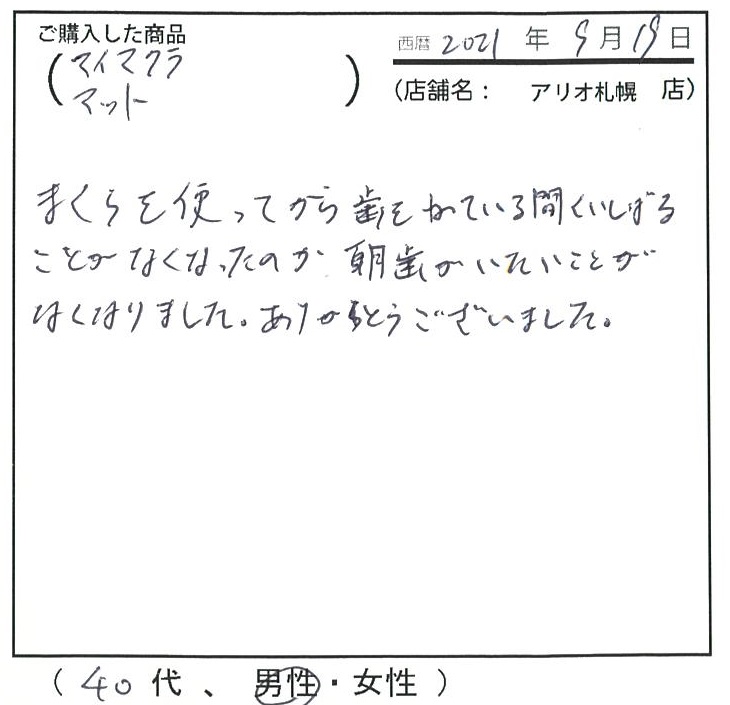 ご購入した商品
(マイマクラ
マット)
西暦 2021 年 9月19日
(店舗名: アリオ札幌 店)
まくらを使ってから歯をねている間くいしばる
ことがなくなったのか 朝歯がいたいことが
なくなりました。ありがとうございました。
(40代、男性・女性)